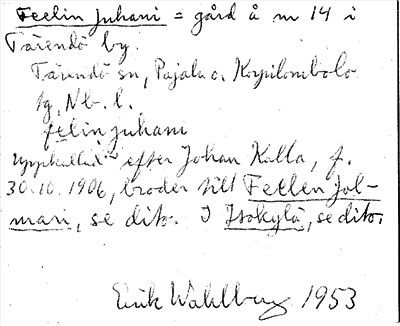 Feelin Juhani = gård å nr 14 i
Tärendö by.
Tärendö sn, Pajala o. Korpilombolo
tg, Nb. l.
felin juhani
Uppkallad efter Johan Kalla, f.
30.10.1906, broder till Feelen Jol-
mari, se dito. I Isokylä, se dito.
Erik Wahlberg 1953